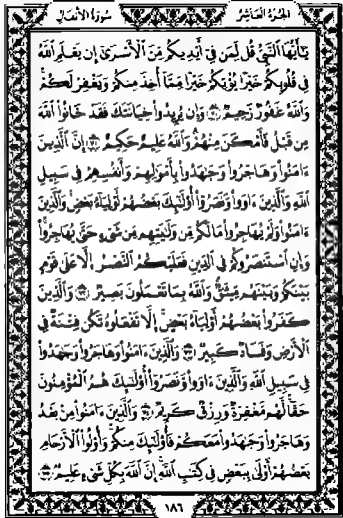 الجزء العاشر سورة الأنفال
يَٰٓأَيُّهَا ٱلنَّبِىُّ قُل لِّمَن فِىٓ أَيْدِيكُم مِّنَ ٱلْأَسْرَىٰٓ إِن يَعْلَمِ ٱللَّهُ
فِى قُلُوبِكُمْ خَيْرًا يُؤْتِكُمْ خَيْرًا مِّمَّآ أُخِذَ مِنكُمْ وَيَغْفِرْ لَكُمْ ۗ
وَٱللَّهُ غَفُورٌ رَّحِيمٌ ٧٠ وَإِن يُرِيدُوا۟ خِيَانَتَكَ فَقَدْ خَانُوا۟ ٱللَّهَ
مِن قَبْلُ فَأَمْكَنَ مِنْهُمْ ۗ وَٱللَّهُ عَلِيمٌ حَكِيمٌ ٧١ إِنَّ ٱلَّذِينَ
ءَامَنُوا۟ وَهَاجَرُوا۟ وَجَٰهَدُوا۟ بِأَمْوَٰلِهِمْ وَأَنفُسِهِمْ فِى سَبِيلِ
ٱللَّهِ وَٱلَّذِينَ ءَاوَوا۟ وَّنَصَرُوٓا۟ أُو۟لَٰٓئِكَ بَعْضُهُمْ أَوْلِيَآءُ بَعْضٍ ۚ وَٱلَّذِينَ
ءَامَنُوا۟ وَلَمْ يُهَاجِرُوا۟ مَا لَكُم مِّن وَلَٰيَتِهِم مِّن شَىْءٍ حَتَّىٰ يُهَاجِرُوا۟ ۚ
وَإِنِ ٱسْتَنصَرُوكُمْ فِى ٱلدِّينِ فَعَلَيْكُمُ ٱلنَّصْرُ إِلَّا عَلَىٰ قَوْمٍۭ
بَيْنَكُمْ وَبَيْنَهُم مِّيثَٰقٌ ۗ وَٱللَّهُ بِمَا تَعْمَلُونَ بَصِيرٌ ٧٢ وَٱلَّذِينَ
كَفَرُوا۟ بَعْضُهُمْ أَوْلِيَآءُ بَعْضٍ ۚ إِلَّا تَفْعَلُوهُ تَكُن فِتْنَةٌ فِى
ٱلْأَرْضِ وَفَسَادٌ كَبِيرٌ ٧٣ وَٱلَّذِينَ ءَامَنُوا۟ وَهَاجَرُوا۟ وَجَٰهَدُوا۟
فِى سَبِيلِ ٱللَّهِ وَٱلَّذِينَ ءَاوَوا۟ وَّنَصَرُوٓا۟ أُو۟لَٰٓئِكَ هُمُ ٱلْمُؤْمِنُونَ
حَقًّا ۚ لَّهُم مَّغْفِرَةٌ وَرِزْقٌ كَرِيمٌ ٧٤ وَٱلَّذِينَ ءَامَنُوا۟ مِنۢ بَعْدُ
وَهَاجَرُوا۟ وَجَٰهَدُوا۟ مَعَكُمْ فَأُو۟لَٰٓئِكَ مِنكُمْ ۚ وَأُو۟لُوا۟ ٱلْأَرْحَامِ
بَعْضُهُمْ أَوْلَىٰ بِبَعْضٍ فِى كِتَٰبِ ٱللَّهِ ۗ إِنَّ ٱللَّهَ بِكُلِّ شَىْءٍ عَلِيمٌۢ ٧٥
١٨٦